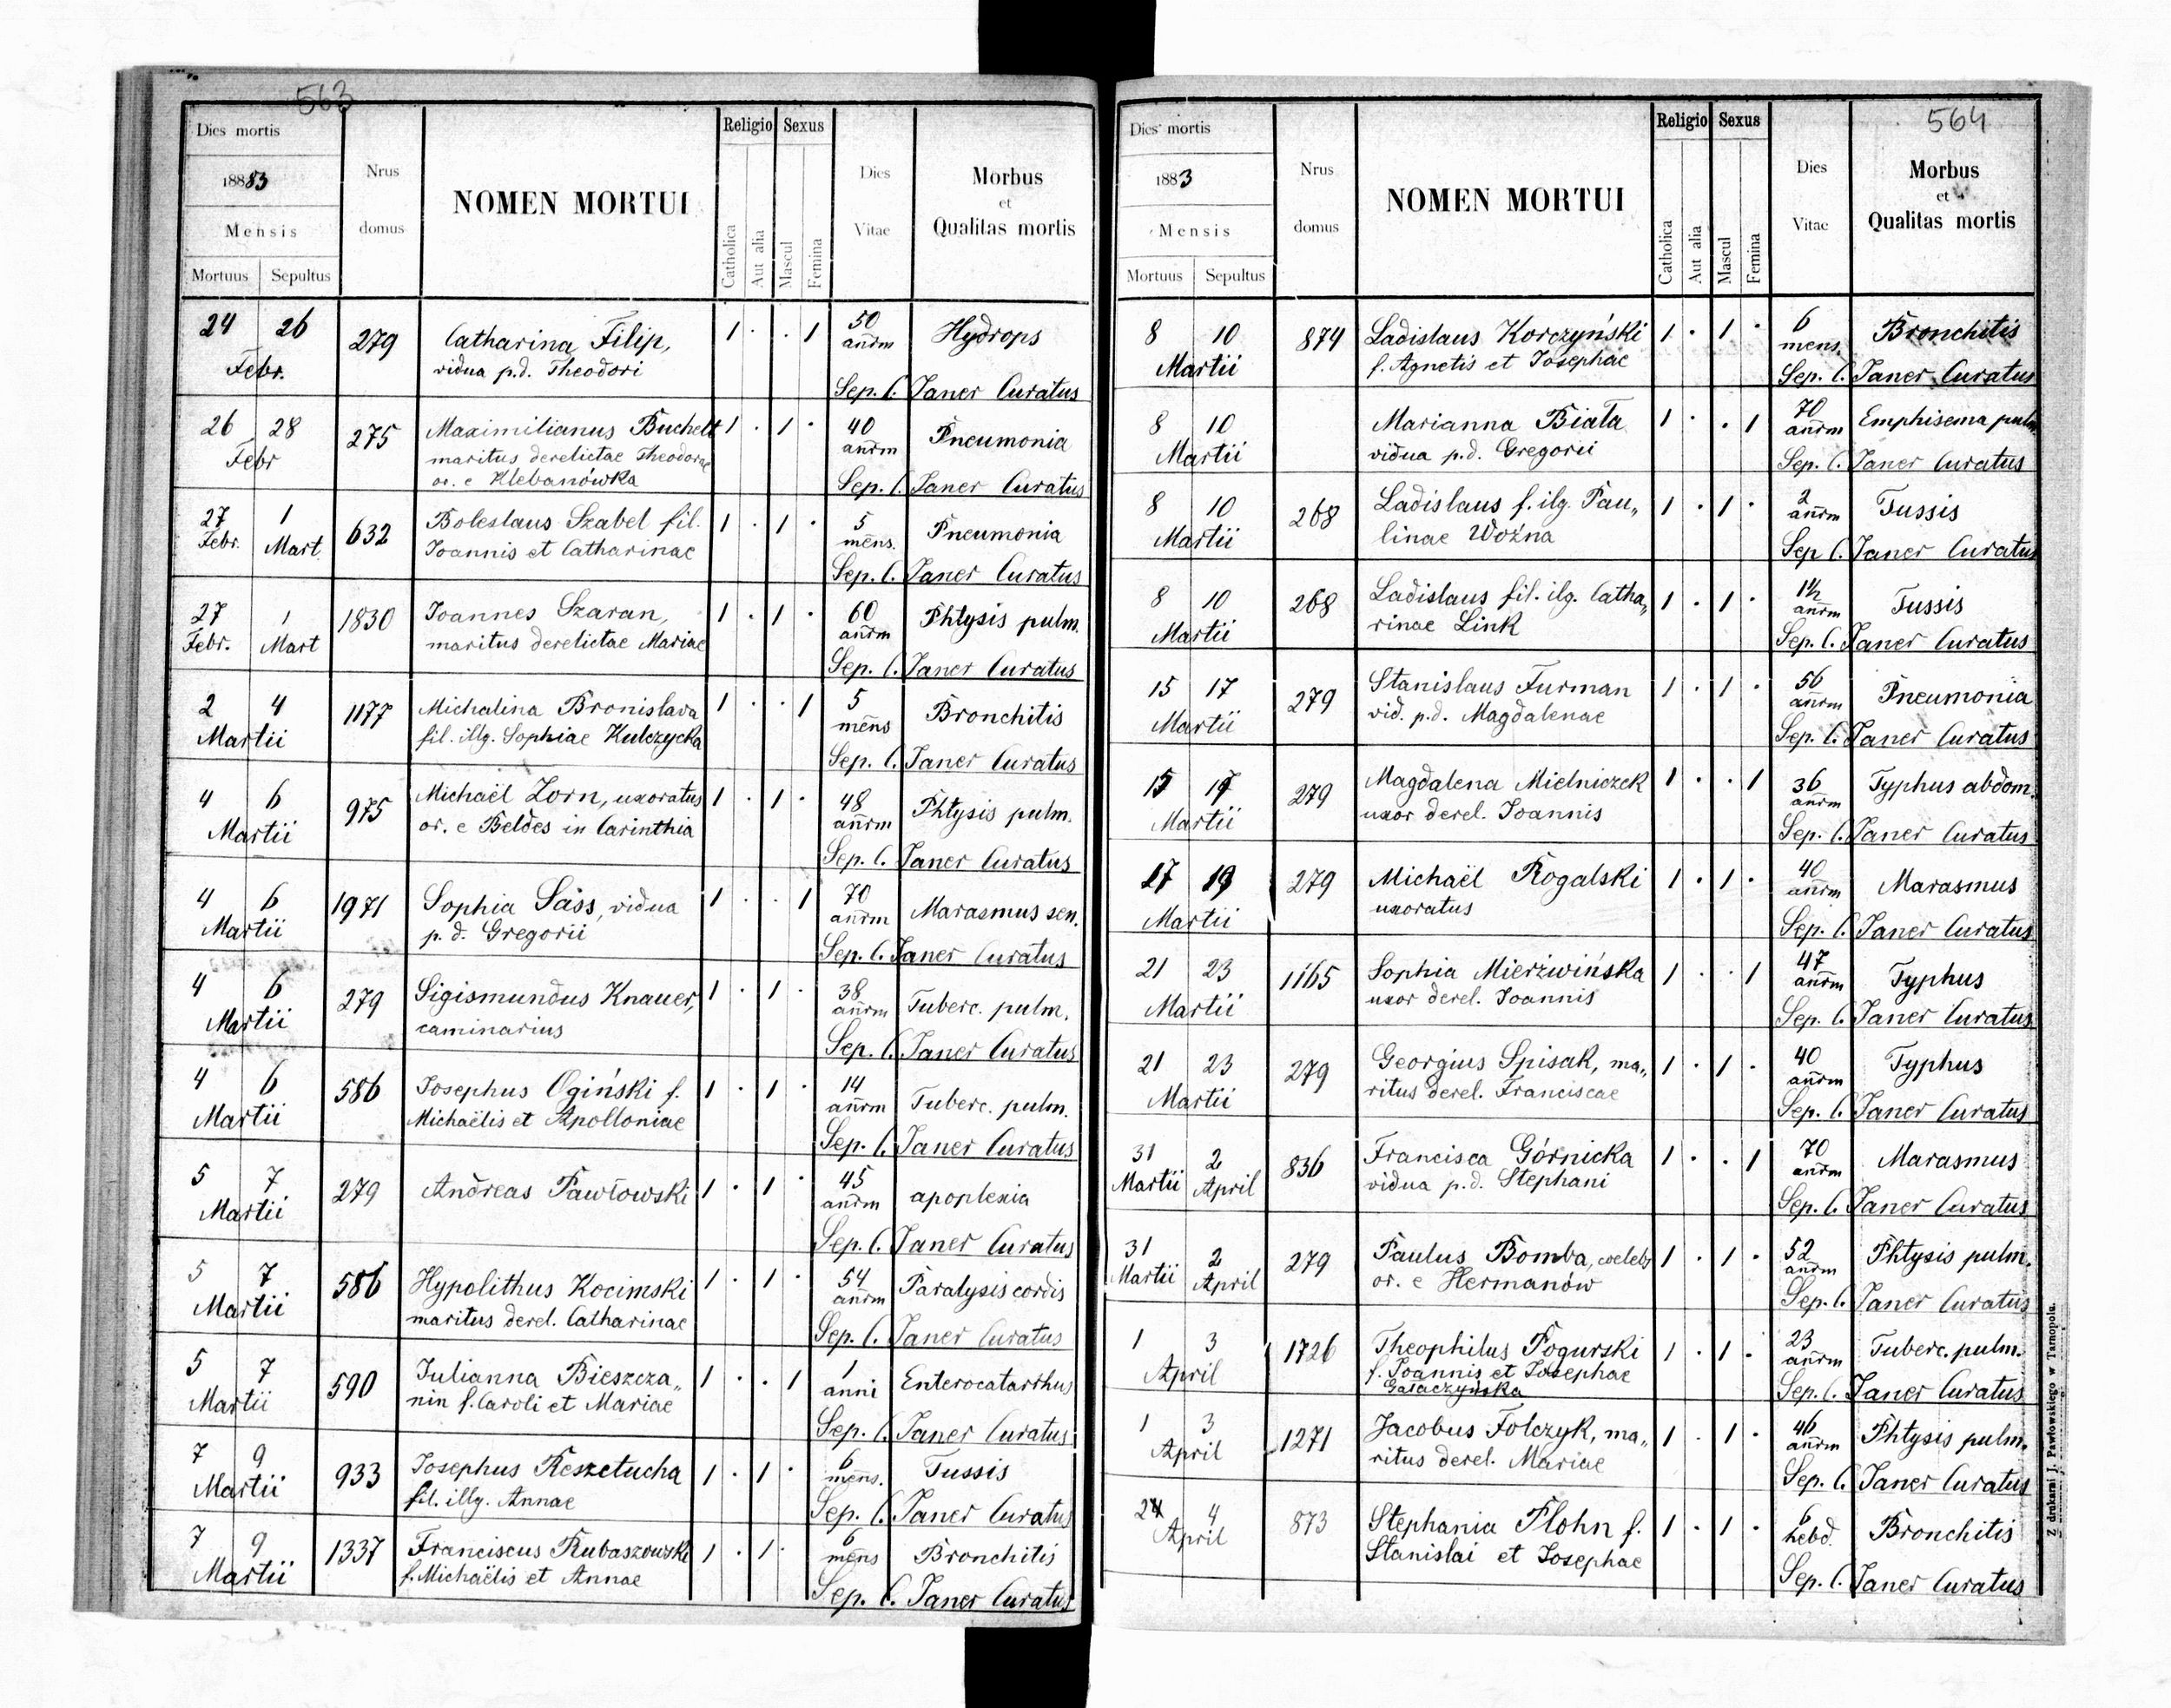 563
Dies mortis
Nrus domus
NOMEN MORTUI
Religio
Sexus
Dies Vitae
Morbus et Qualitas mortis
18883
Mensis
Mortuus Sepultus
Catholica
Aut alia
Mascul
Femina
24 26 279 Catharina Filip, 1 . . 1 50 Hydrops
Febr. vidua p.d. Theodori anrm
Sep. C. Janer Curatus
26 28 275 Maximilianus Buchelt 1 . 1 . 40 Pneumonia
Febr maritus derelictae Theodorae anrm
or. e Klebanówka
Sep. C. Janer Curatus
27 1 632 Boleslaus Szabel fil. 1 . 1 . 5 Pneumonia
Febr. Mart Joannis et Catharinae mens.
Sep. C. Janer Curatus
27 1 1830 Joannes Szaran, 1 . 1 . 60 Phtysis pulm.
Febr. Mart maritus derelictae Mariae anrm
Sep. C. Janer Curatus
2 4 1177 Michalina Bronislava 1 . . 1 5 Bronchitis
Martii fil. illg. Sophiae Kulczycka mens
Sep. C. Janer Curatus
4 6 975 Michaël Zorn, uxoratus 1 . 1 . 48 Phtysis pulm.
Martii or. e Beldes in Carinthia anrm
Sep. C. Janer Curatus
4 6 1971 Sophia Sass, vidua 1 . . 1 70 Marasmus sen.
Martii p. d. Gregorii anrm
Sep. C. Janer Curatus
4 6 279 Sigismundus Knauer, 1 . 1 . 38 Tuberc. pulm.
Martii caminarius anrm
Sep. C. Janer Curatus
4 6 586 Josephus Ogiński f. 1 . 1 . 14 Tuberc. pulm.
Martii Michaëlis et Apolloniae anrm
Sep. C. Janer Curatus
5 7 279 Andreas Pawłowski 1 . 1 . 45 apoplexia
Martii anrm
Sep. C. Janer Curatus
5 7 586 Hypolithus Kocimski 1 . 1 . 54 Paralysis cordis
Martii maritus derel. Catharinae anrm
Sep. C. Janer Curatus
5 7 590 Julianna Bieszcza„ 1 . . 1 1 Enterocatarrhus
Martii nin f. Caroli et Mariae anni
Sep. C. Janer Curatus
7 9 933 Josephus Reszetucha 1 . 1 . 6 Tussis
Martii fil. illg. Annae mens.
Sep. C. Janer Curatus
7 9 1337 Franciscus Rubaszowski 1 . 1 . 6 Bronchitis
Martii f. Michaëlis et Annae mens
Sep. C. Janer Curatus
564
Dies mortis
Nrus domus
NOMEN MORTUI
Religio
Sexus
Dies Vitae
Morbus et Qualitas mortis
1883
Mensis
Mortuus Sepultus
Catholica
Aut alia
Mascul
Femina
8 10 874 Ladislaus Korczyński 1 . 1 . 6 Bronchitis
Martii f. Agnetis et Josephae mens.
Sep. C. Janer Curatus
8 10 Marianna Biała 1 . . 1 70 Emphisema pulm.
Martii vidua p.d. Gregorii anrm
Sep. C. Janer Curatus
8 10 268 Ladislaus f. ilg. Pau„ 1 . 1 . 2 Tussis
Martii linae Woźna anrm
Sep C. Janer Curatus
8 10 268 Ladislaus fil. ilg. Catha„ 1 . 1 . 1½ Tussis
Martii rinae Link anrm
Sep. C. Janer Curatus
15 17 279 Stanislaus Furman 1 . 1 . 56 Pneumonia
Martii vid. p.d. Magdalenae anrm
Sep. C. Janer Curatus
15 17 279 Magdalena Mielniczek 1 . . 1 36 Typhus abdom.
Martii uxor derel. Joannis anrm
Sep. C. Janer Curatus
17 19 279 Michaël Rogalski 1 . 1 . 40 Marasmus
Martii uxoratus anrm
Sep. C. Janer Curatus
21 23 1165 Sophia Mierżwińska 1 . . 1 47 Typhus
Martii uxor derel. Joannis anrm
Sep. C. Janer Curatus
21 23 279 Georgius Spisak, ma„ 1 . 1 . 40 Typhus
Martii ritus derel. Franciscae anrm
Sep. C. Janer Curatus
31 2 836 Francisca Górnicka 1 . . 1 70 Marasmus
Martii April vidua p.d. Stephani anrm
Sep. C. Janer Curatus
31 2 279 Paulus Bomba, coelebs 1 . 1 . 52 Phtysis pulm.
Martii April or. e Hermanów anrm
Sep. C. Janer Curatus
1 3 1726 Theophilus Pogurski 1 . 1 . 23 Tuberc. pulm.
April f. Joannis et Josephae anrm
Gałaczyńska
Sep. C. Janer Curatus
1 3 1271 Jacobus Folczyk, ma„ 1 . 1 . 46 Phtysis pulm.
April ritus derel. Mariae anrm
Sep. C. Janer Curatus
2 4 873 Stephania Plohn f. 1 . 1 . 6 Bronchitis
April Stanislai et Josephae hebd.
Sep. C. Janer Curatus
Z drukarni J. Pawłowskiego w Tarnopolu.